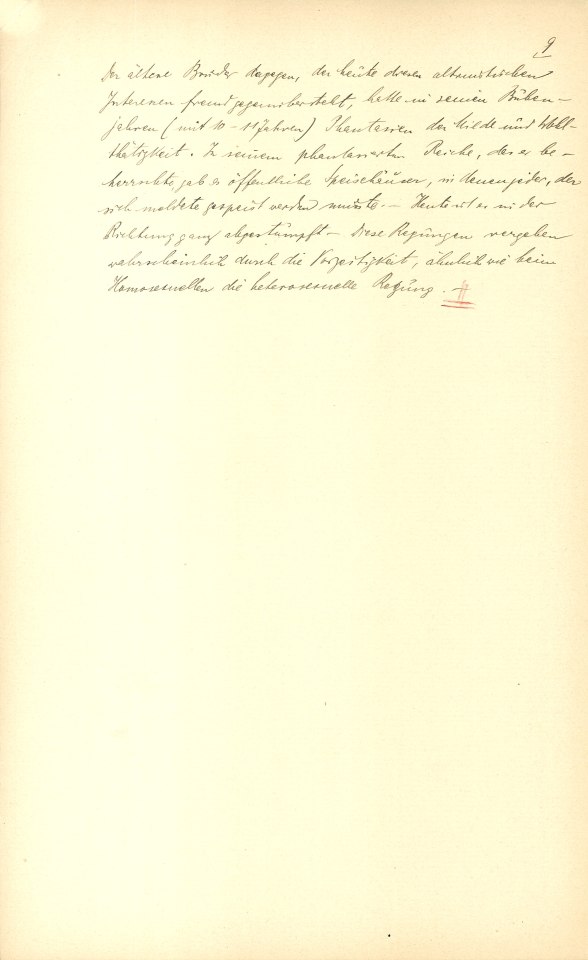 9
Der ältere Bruder dagegen, der heute diesen altruistischen
Interessen fremd gegenübersteht, hatte in seinen Buben-
jahren (mit 10 - 11 Jahren) Phantasien der Milde und Wohl-
thätigkeit. In seinem phantasierten Reiche, das er be-
herrschte, gab es öffentliche Speisehäuser, in denen jeder, der
sich meldete gespeist werden musste. - Heute ist er in der
Richtung ganz abgestumpft - Diese Regungen vergehen
wahrscheinlich durch die Vorzeitigkeit, ähnlich wie beim
Homosexuellen die heterosexuelle Regung. -